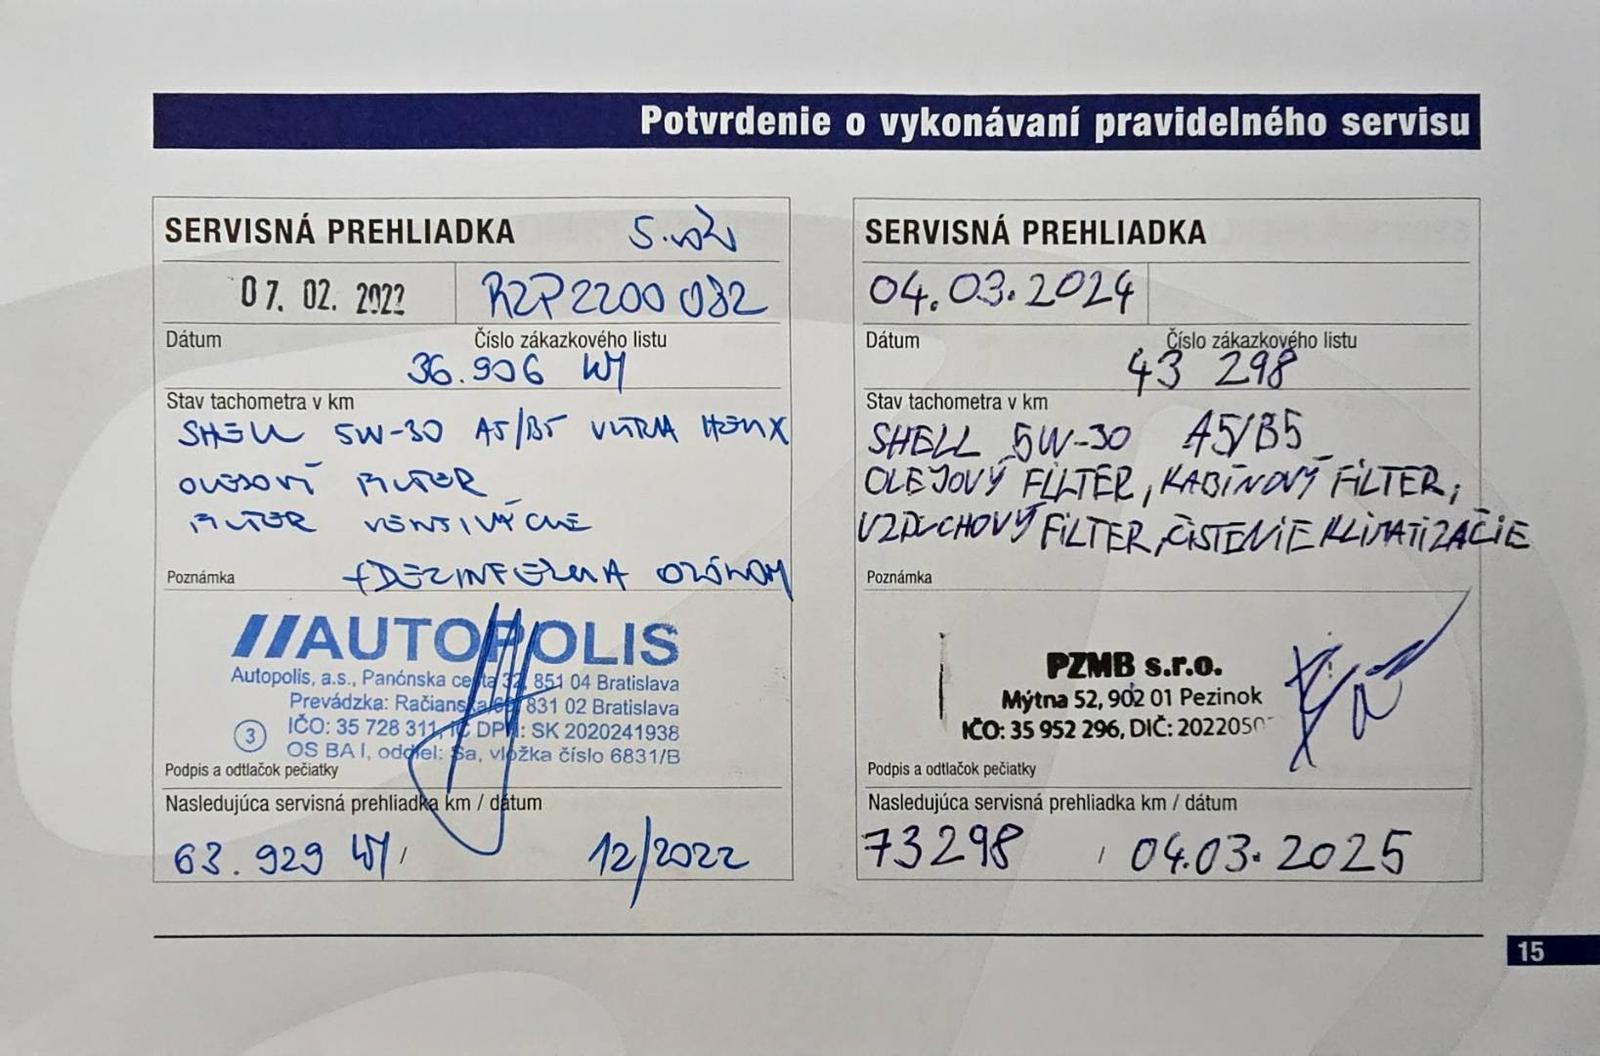 Potvrdenie o vykonávaní pravidelného servisu
SERVISNÁ PREHLIADKA
07. 02. 2022 RZP2200082
Dátum Číslo zákazkového listu
36.906 KM
Stav tachometra v km
SHELL 5W-30 A5/B5 ULTRA HELIX
OLEJOVÝ FILTER
FILTER VENTILÁCIE
Poznámka +DEZINFEKCIA OZÓNOM
//AUTOPOLIS
Autopolis, a.s., Panónska cesta 32, 851 04 Bratislava
Prevádzka: Račianska 831 02 Bratislava
3 IČO: 35 728 311, IČ DPH: SK 2020241938
OS BA I, oddiel: Sa, vložka číslo 6831/B
Podpis a odtlačok pečiatky
Nasledujúca servisná prehliadka km / dátum
63.929 KM / 12/2022
SERVISNÁ PREHLIADKA
04.03.2024
Dátum Číslo zákazkového listu
43 298
Stav tachometra v km
SHELL 5W-30 A5/B5
OLEJOVÝ FILTER, KABÍNOVÝ FILTER,
VZDUCHOVÝ FILTER, ČISTENIE KLIMATIZAČIE
Poznámka
PZMB s.r.o.
Mýtna 52, 902 01 Pezinok
IČO: 35 952 296, DIČ: 2022050
Podpis a odtlačok pečiatky
Nasledujúca servisná prehliadka km / dátum
73298 / 04.03.2025
15